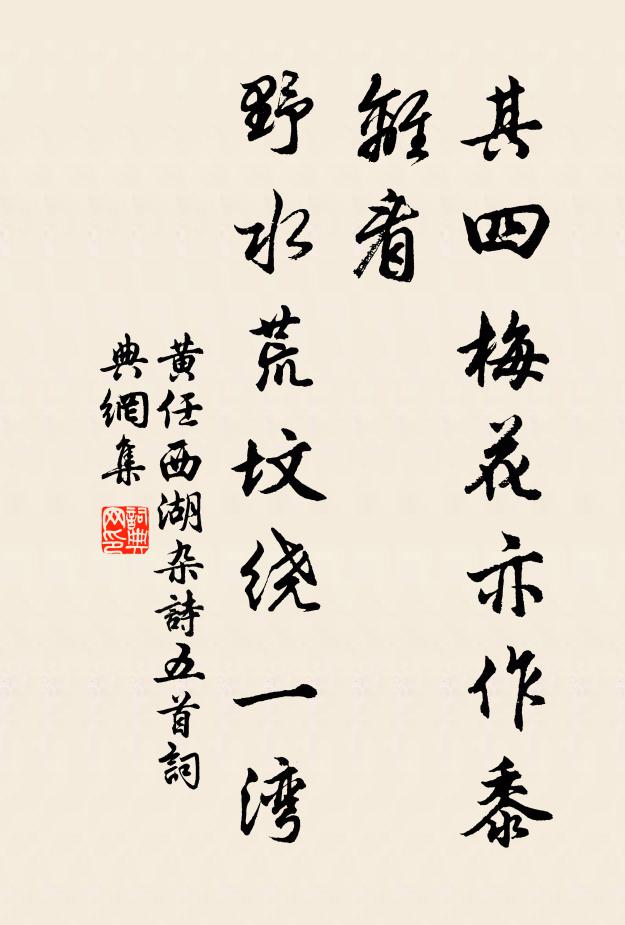 其四梅花亦作黍
離看
野水荒坟绕一湾
黄任西湖杂詩五首詞
典網集
詞典
网印